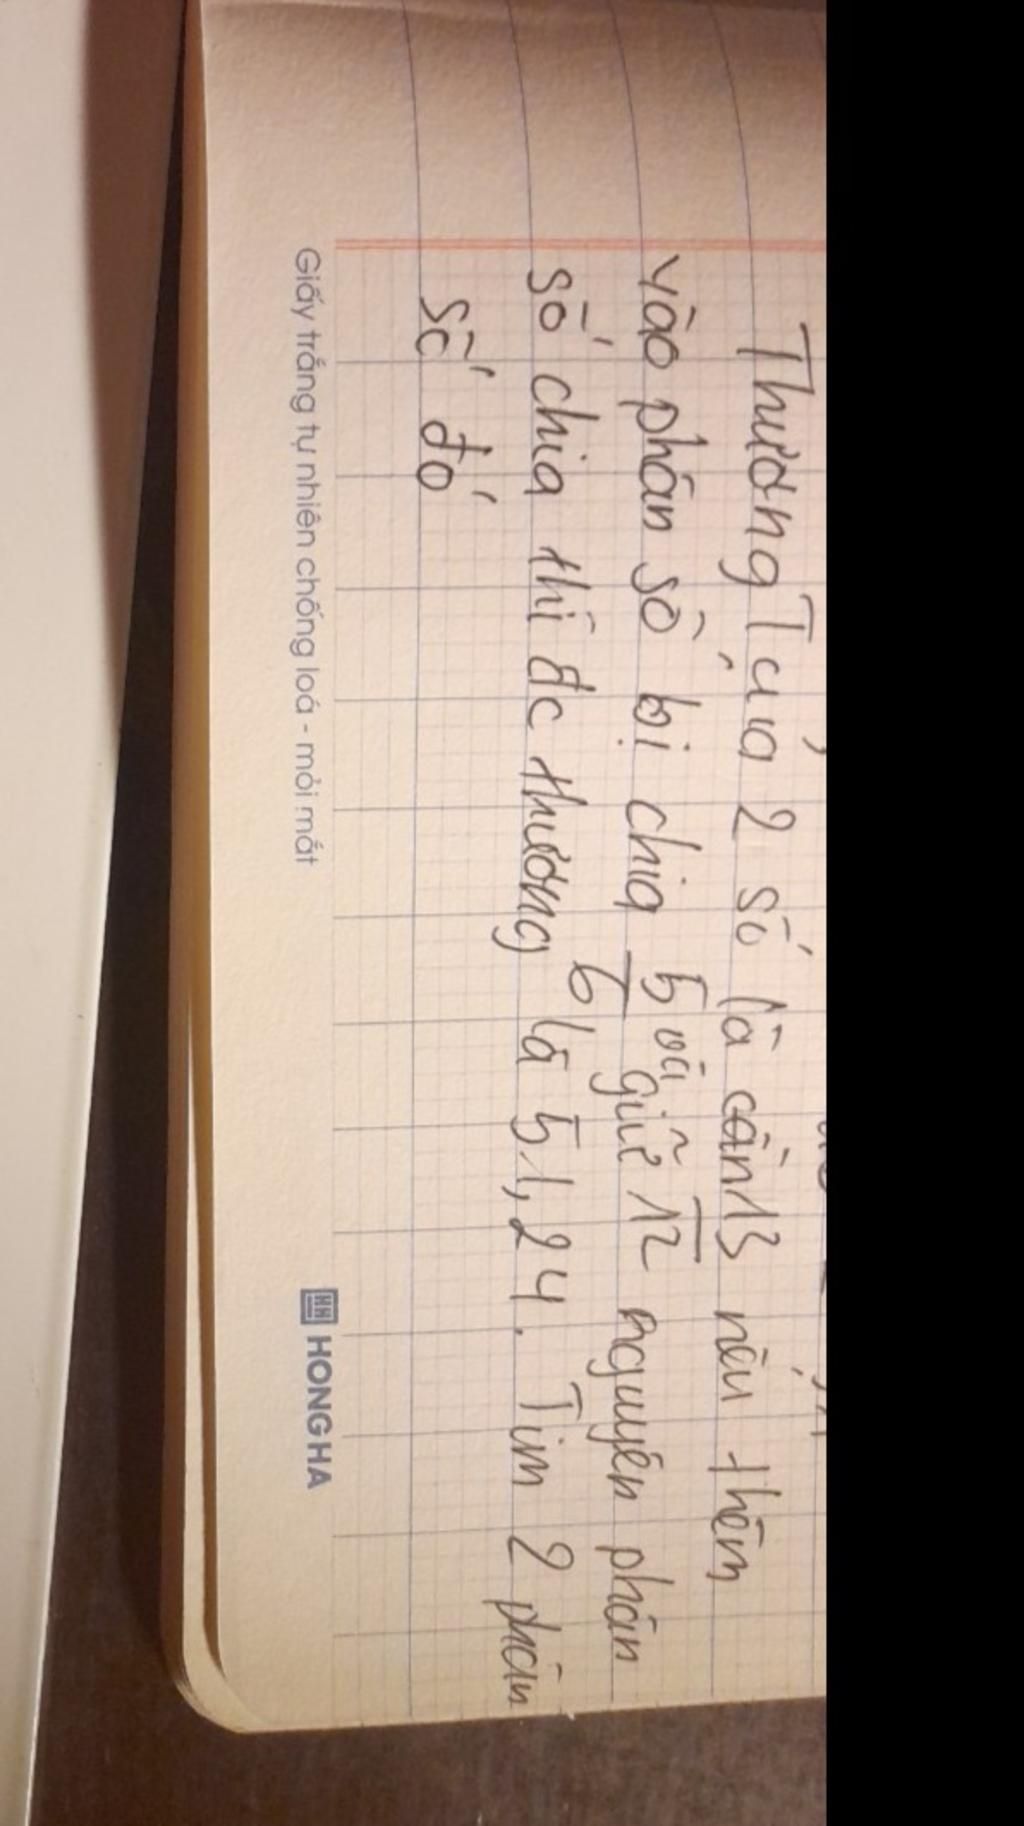 Thương của 2 số là 13/12 nếu thêm
vào phân số bị chia 5/6 và giữ nguyên phân
số chia thì đc thương là 51,24. Tìm 2 phân
số đó
Giấy trắng tự nhiên chống loá - mỏi mắt
HH HONG HA